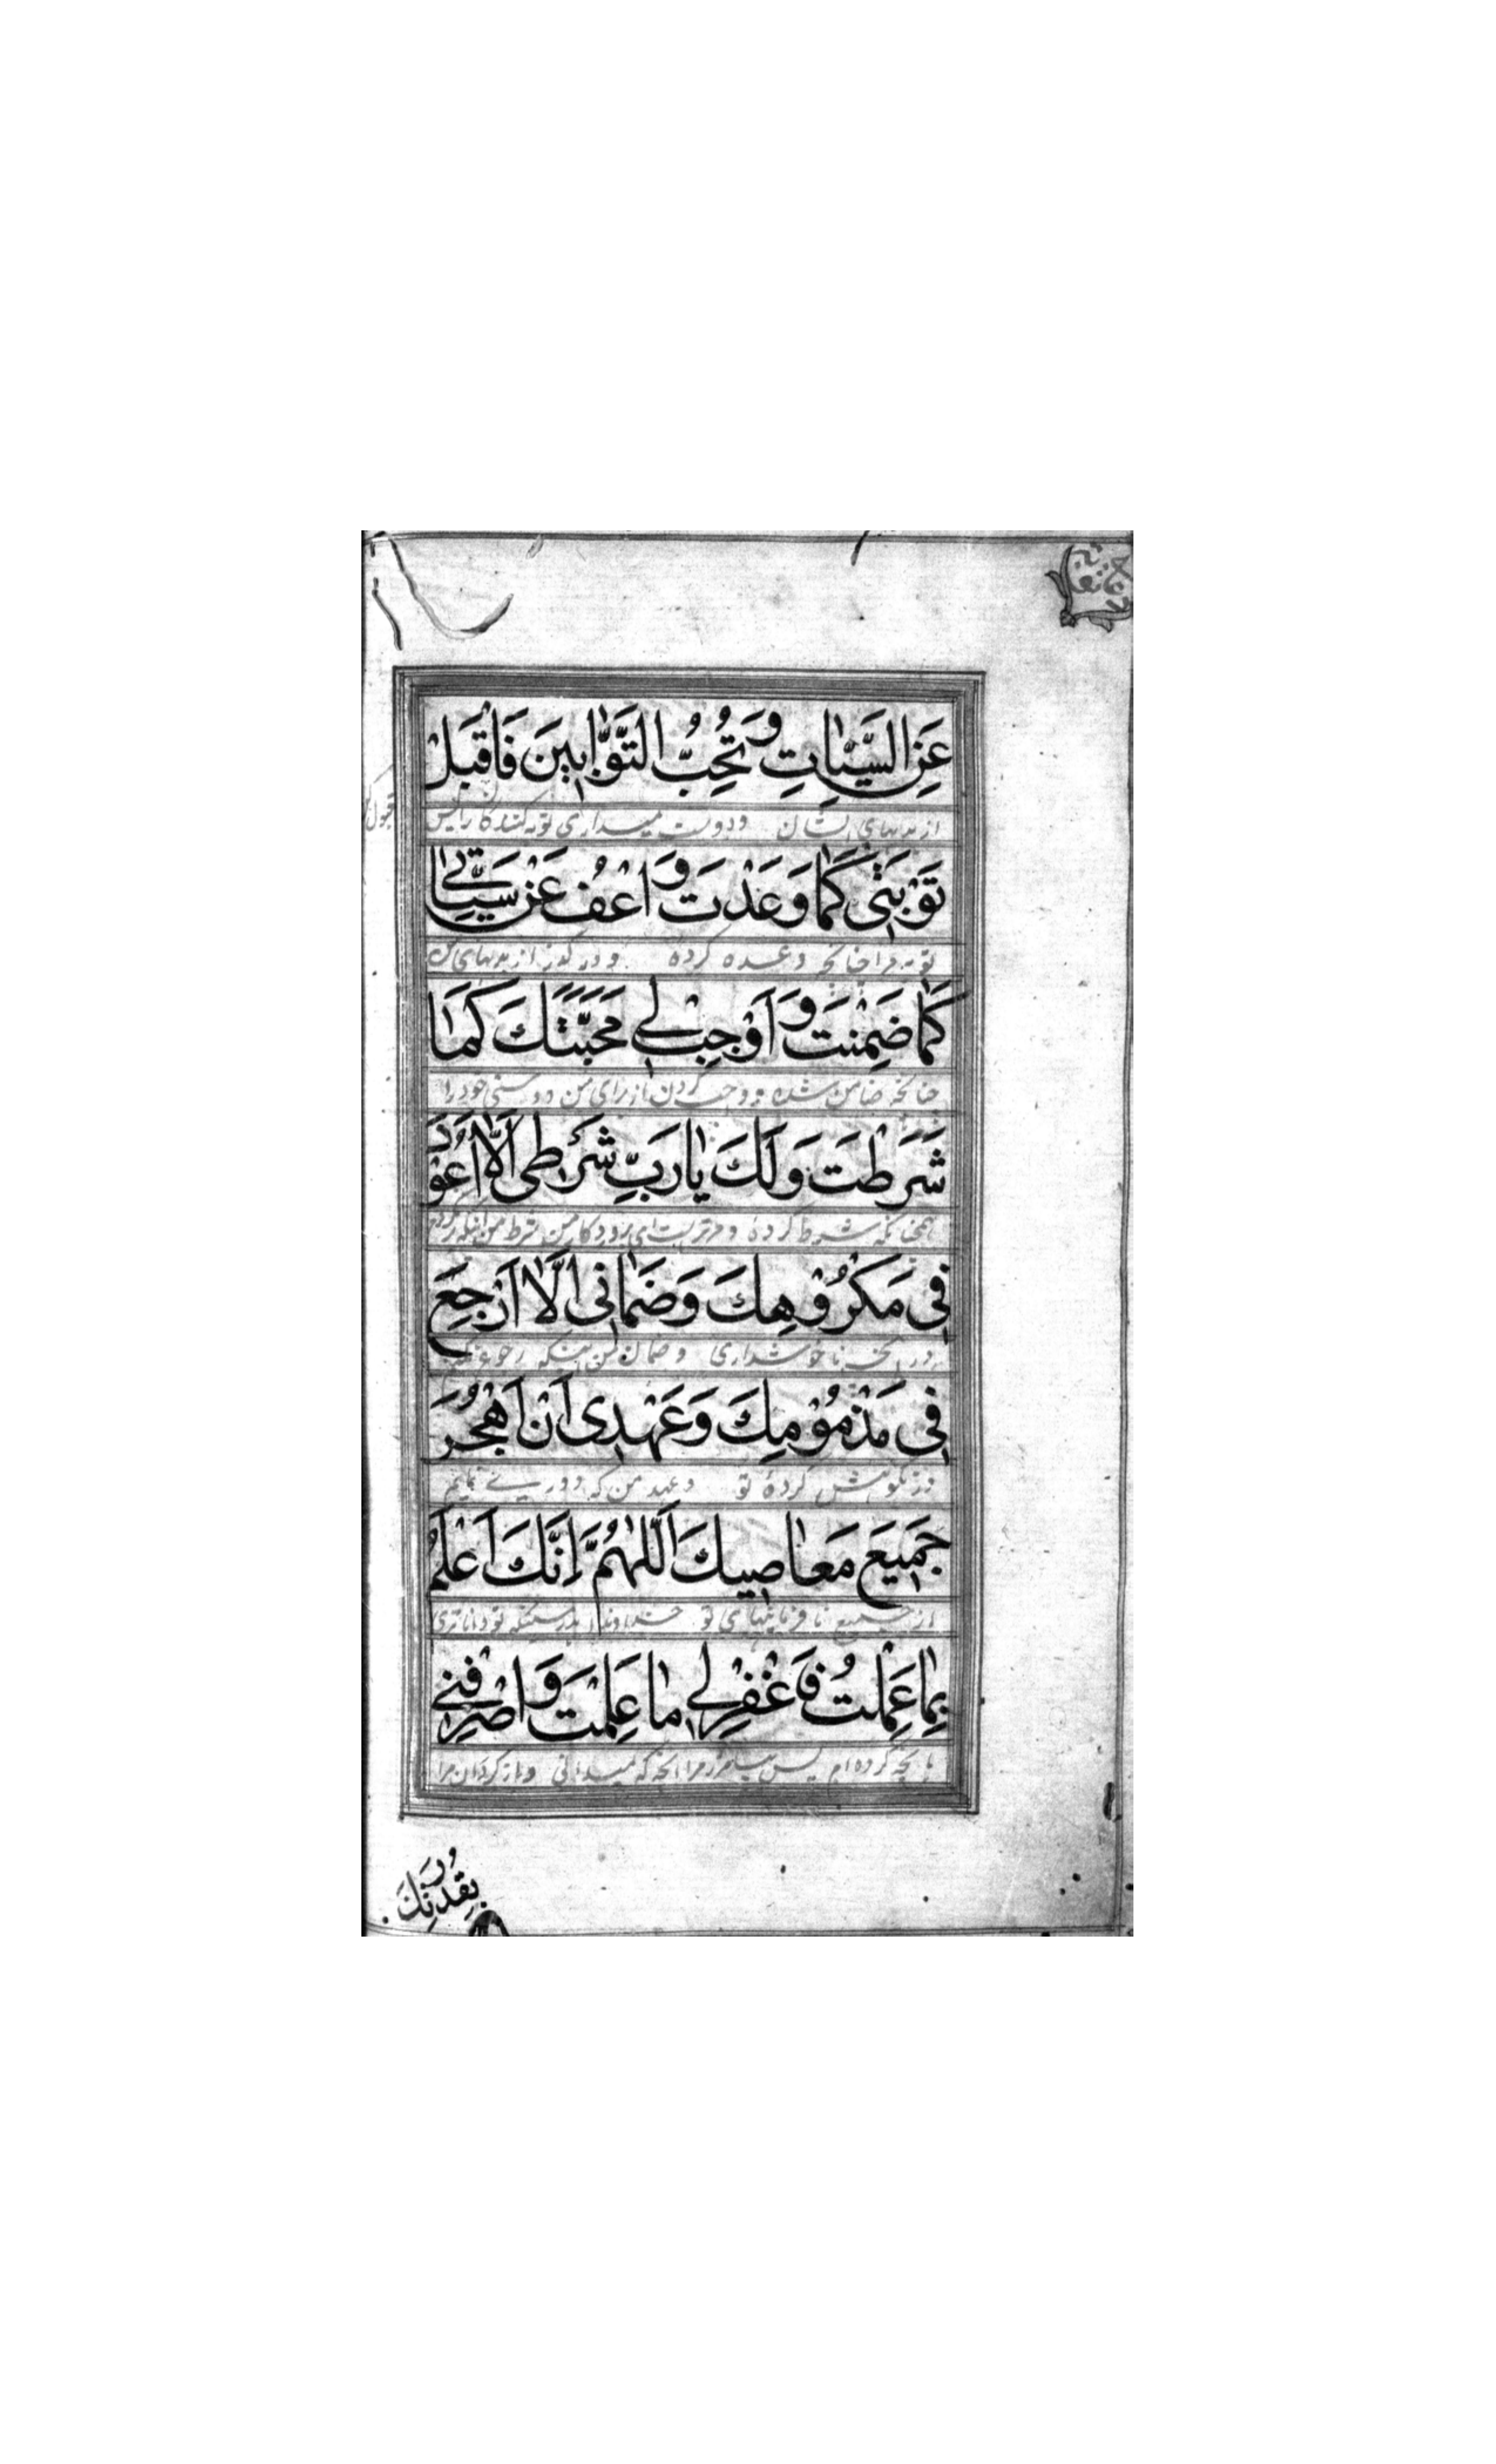 عَنِ السَّيِّئَاتِ وَتُحِبُّ التَّوَّابِينَ فَاقْبَلْ
از بدیهای ایشان ودوست میداری توبه کنندکانرا پس قبول کن
تَوْبَتِی كَمَا وَعَدْتَ وَاعْفُ عَنْ سَيِّئَاتِي
توبه مرا چنانچه وعده کردهٔ و درگذر از بدیهای من
كَمَا ضَمِنْتَ وَاَوْجِبْ لِي مَحَبَّتَكَ كَمَا
چنانچه ضامن شدهٔ و واجب گردان از برای من دوستی خود را
شَرَطْتَ وَلَكَ يَارَبِّ شَرْطِى اَلَّا اَعُوْدَ
همچنانکه شرط کردهٔ و مرتراست ای پروردکار من شرط من اینکه
فِى مَكْرُوْهِكَ وَضَمَانِى اَلَّا اَرْجِعَ
در آنچه ناخوشداری وضمان من اینکه رجوع نکنم
فِى مَذْمُوْمِكَ وَعَهْدِى اَنْ اَهْجُرَ
در نکوهش کردهٔ تو وعهد من که دوری نمایم
جَمِيْعَ مَعَاصِيكَ اَللّٰهُمَّ اِنَّكَ اَعْلَمُ
از جمیع نافرمانیهای تو خداوندا بدرستیکه تو داناتری
بِمَا عَمِلْتُ فَاغْفِرْلِي مَا عَلِمْتَ وَاصْرِفْنِي
بآنچه کرده‌ام پس بیامرز مرا آنچه که میدانی وبازکردان مرا
بِقُدْرَتِكَ